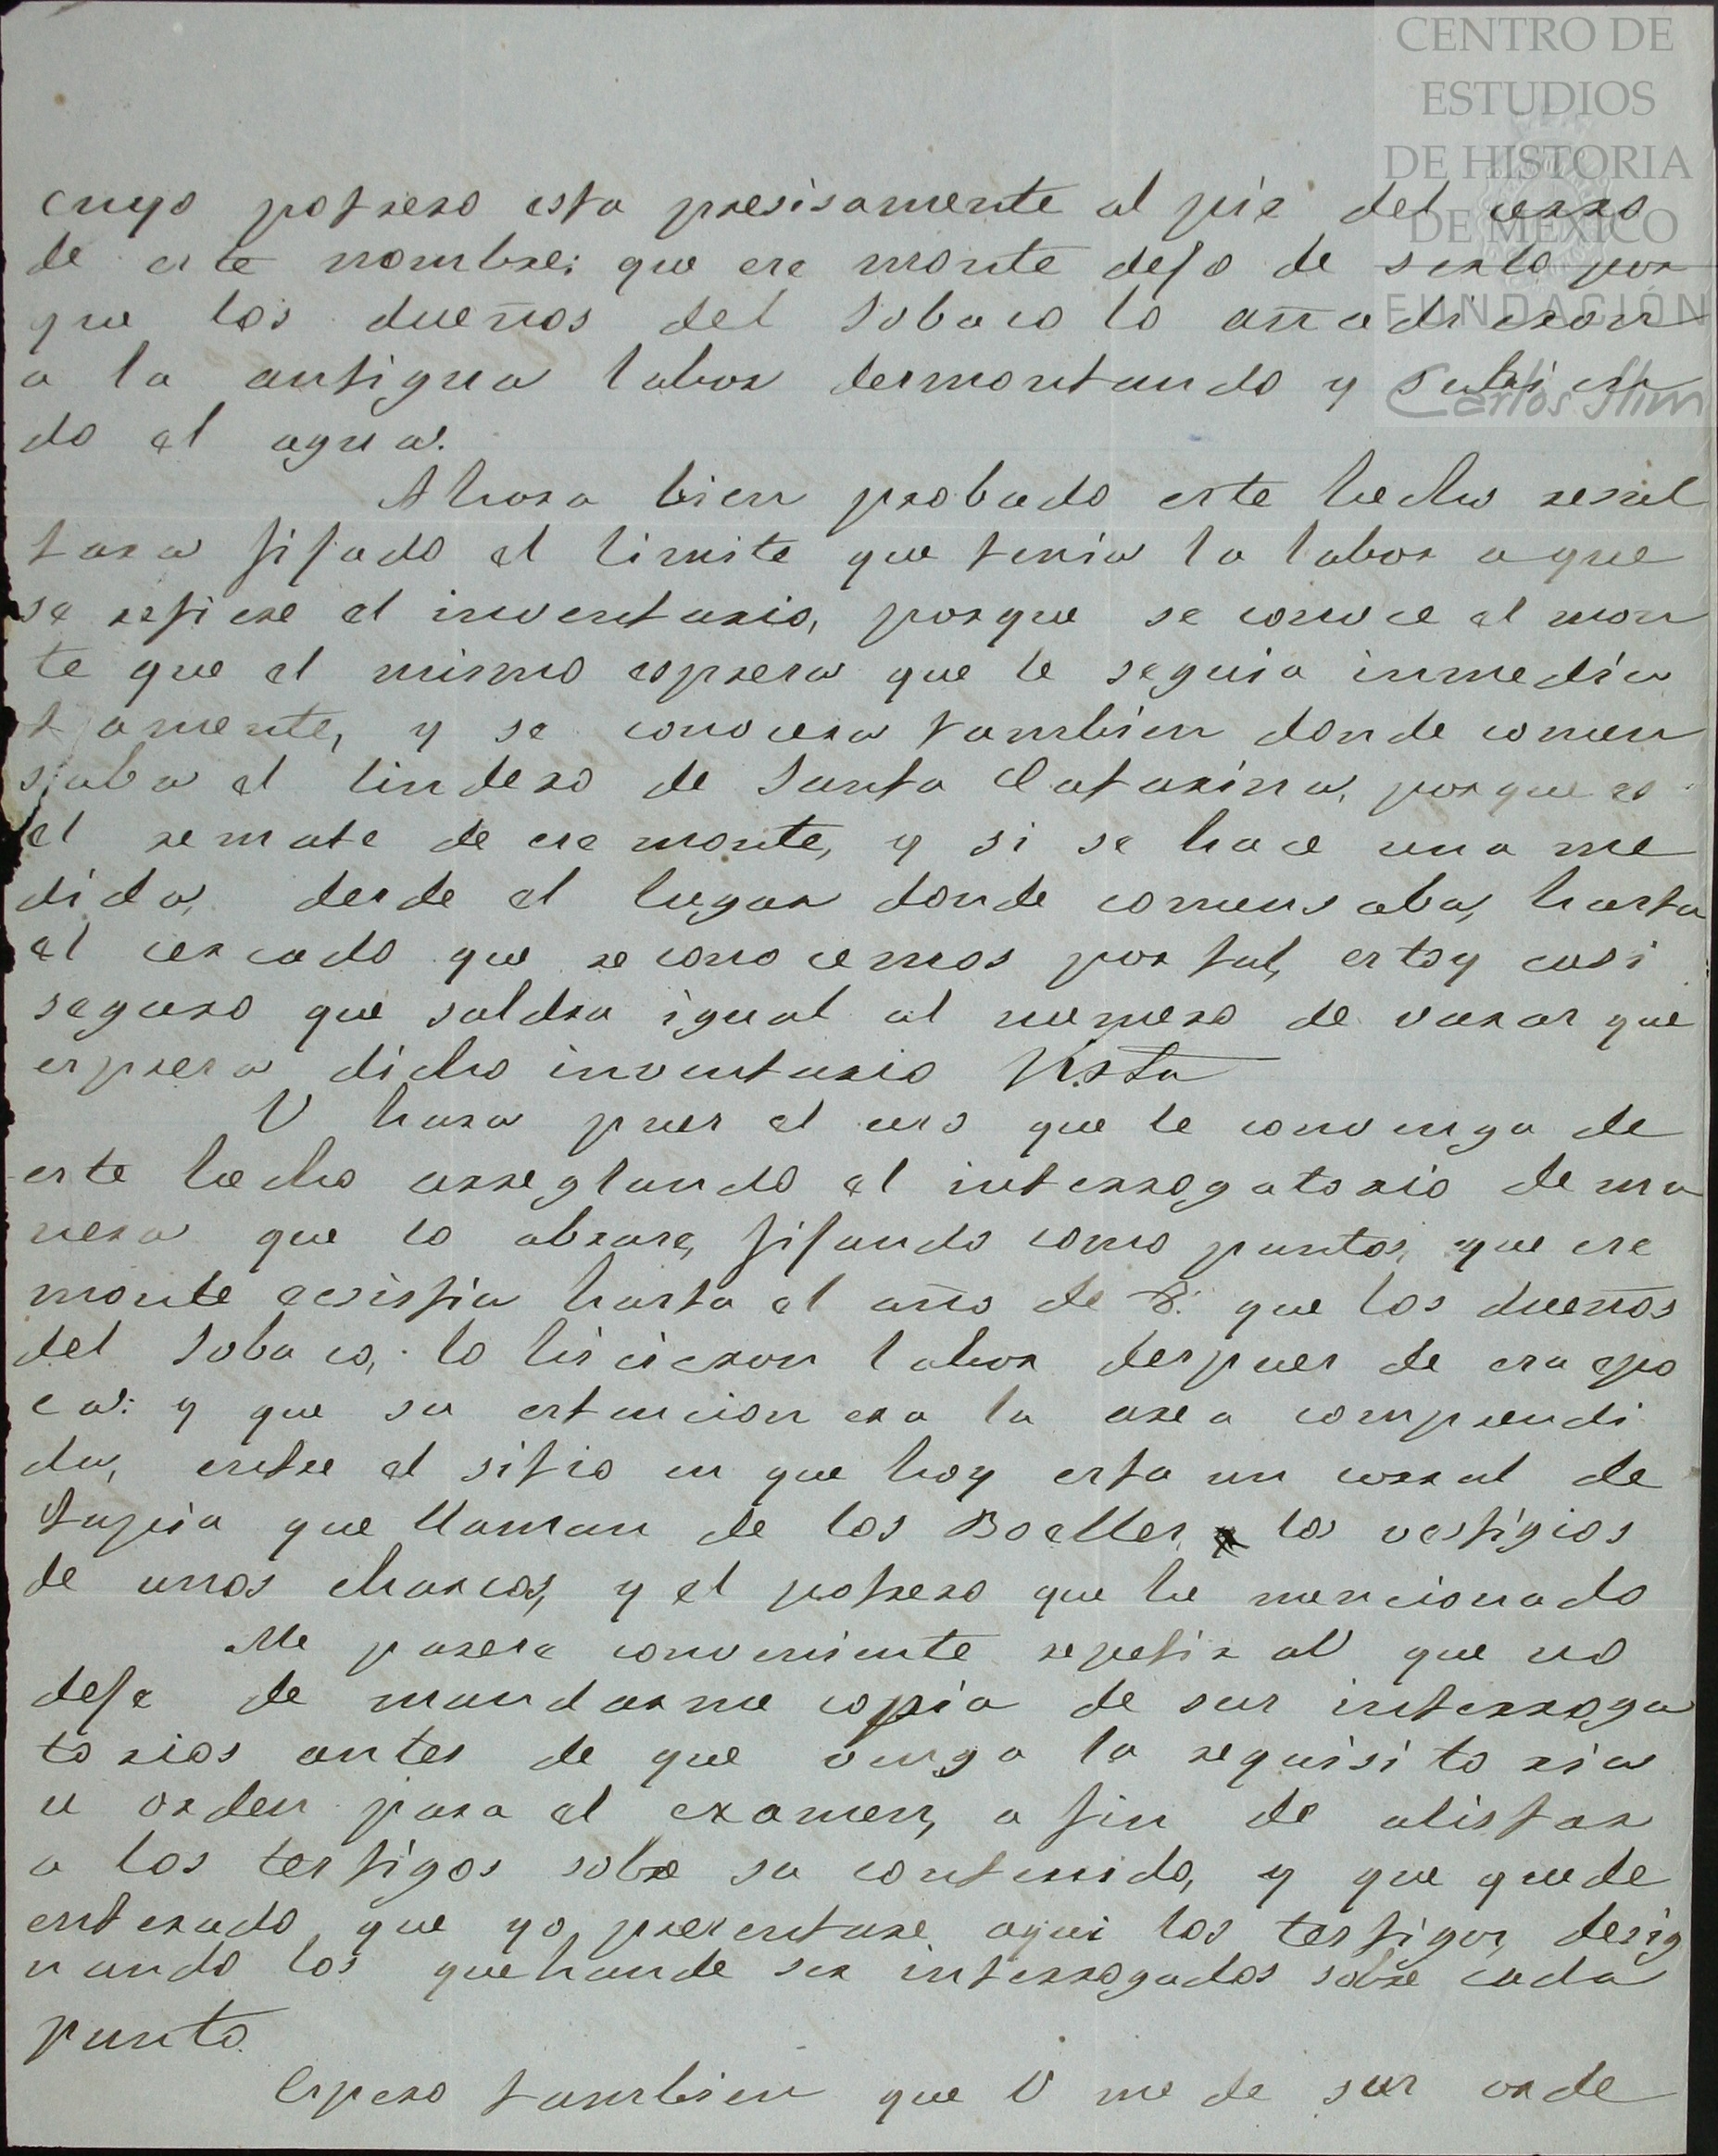 CENTRO DE
ESTUDIOS
DE HISTORIA
DE MÉXICO
FUNDACIÓN
Carlos Slim
cuyo potrero esta presisamente al pie del cerro
de este nombre; que ese monte dejo de serlo por
que los dueños del Sobaco lo añadieron
a la antigua labor desmontando y subien
do el agua.
Ahora bien probado este hecho resul
tara fijado el limite que tenia la labor a que
se refiere el inventario, porque se conoce el mon
te que el mismo espresa que le seguia inmedia
tamente, y se conocera tambien donde comen
saba el lindero de Santa Catarina, porque es
el remate de ese monte, y si se hace una me
dida, desde el lugar donde comensaba, hasta
el cercado que reconocemos por tal, estoy casi
seguro que saldra igual al numero de varas que
espresa dicho inventario
V hara pues el uso que le convenga de
este hecho arreglando el interrogatorio de ma
nera que lo abrase, fijando como puntos, que ese
monte ecsistia hasta el año de que los dueños
del Sobaco, lo hicieron labor despues de esa epo
ca: y que su estencion era la area comprendi
da, entre el sitio en que hoy esta un corral de
tapia que llaman de los los vestigios
de unos charcos, y el potrero que he mencionado
Me parece conveniente repetir a V que no
deje de mandarme copia de sus interroga
torios antes de que venga la requisitoria
u orden para el examen, a fin de alistar
a los testigos sobre su contenido, y que quede
enterado que yo presentare aqui los testigos, desig
nando los que hande ser interrogados sobre cada
punto.
Espero tambien que V me de sus orde